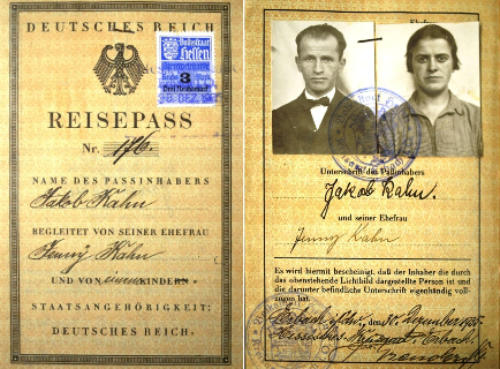 DEUTSCHES REICH
Volksstaat
Hessen
3
Drei Reichsmark
REISEPASS
Nr. 176.
NAME DES PASSINHABERS
Jakob Kahn
BEGLEITET VON SEINER EHEFRAU
Jenny Kahn
UND VON KINDERN
STAATSANGEHÖRIGKEIT:
DEUTSCHES REICH.
Ehefrau
Unterschrift des Paßinhabers
Jakob Kahn.
und seiner Ehefrau
Jenny Kahn
Es wird hiermit bescheinigt, daß der Inhaber die durch
das obenstehende Lichtbild dargestellte Person ist und
die darunter befindliche Unterschrift eigenhändig voll-
zogen hat.
Erbach i/Odw., den 30. Dezember
Hessisches Kreisamt Erbach.